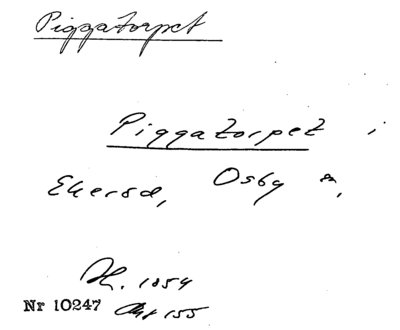 Piggatorpet
Piggatorpet i
Ekersd, Osby sn,
1854
Nr 10247 155